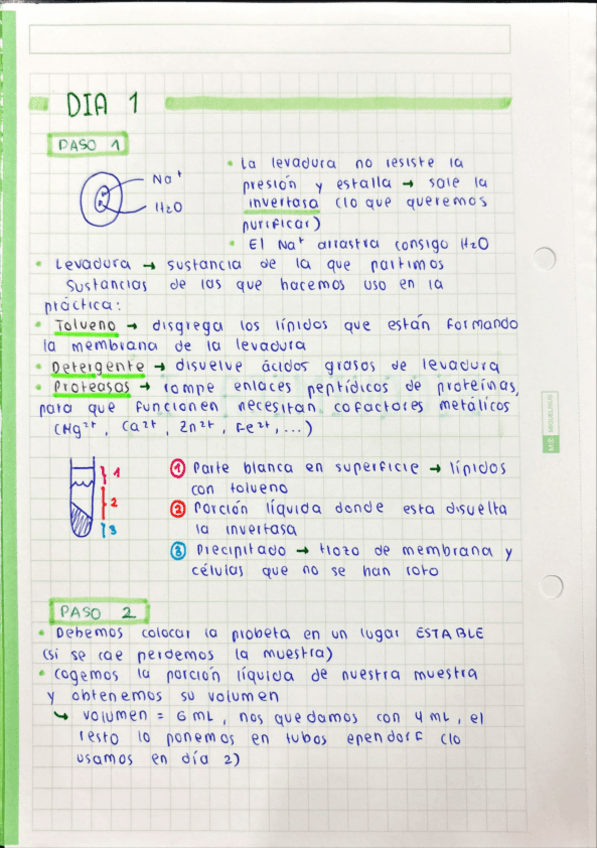 DIA 1
PASO 1
Na⁺
H2O
• La levadura no resiste la
presión y estalla → sale la
invertasa (lo que queremos
purificar)
• El Na⁺ arrastra consigo H2O
• Levadura → sustancia de la que partimos
Sustancias de las que hacemos uso en la
práctica:
• Tolueno → disgrega los línidos que están formando
la membrana de la levadura
• Detergente → disuelve ácidos grasos de levadura
• Proteasas → rompe enlaces peptídicos de proteínas,
para que funcionen necesitan cofactores metálicos
(Mg²⁺, Ca²⁺, Zn²⁺, Fe²⁺, ...)
1
2
3
① Parte blanca en superficie → lípidos
con tolueno
② Porción líquida donde esta disuelta
la invertasa
③ Precipitado → trozo de membrana y
células que no se han roto
PASO 2
• Debemos colocar la probeta en un lugar ESTABLE
(si se cae perdemos la muestra)
• Cogemos la porción líquida de nuestra muestra
y obtenemos su volumen
↳ volumen = 6 mL, nos quedamos con 4 mL, el
resto lo ponemos en tubos ependorf (lo
usamos en día 2)